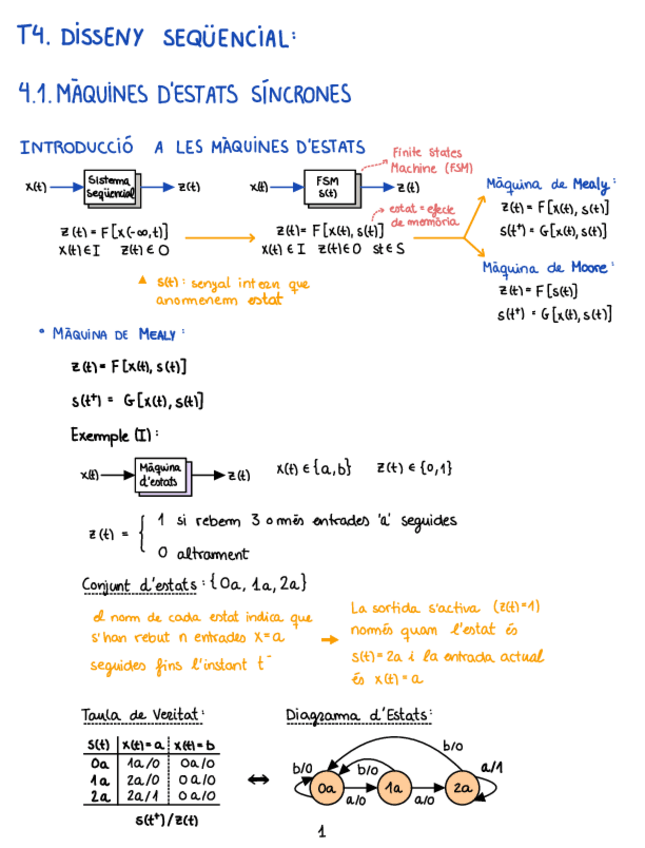 T4. DISSENY SEQÜENCIAL:
4.1. MÀQUINES D'ESTATS SÍNCRONES
INTRODUCCIÓ A LES MÀQUINES D'ESTATS
Finite States
Machine (FSM)
x(t) Sistema seqüencial z(t)
x(t) FSM s(t) z(t)
z(t) = F[x(-∞,t)]
x(t) ∈ I z(t) ∈ O
estat = efecte
de memòria
z(t) = F[x(t), s(t)]
x(t) ∈ I z(t) ∈ O st ∈ S
Màquina de Mealy:
z(t) = F[x(t), s(t)]
s(t⁺) = G[x(t), s(t)]
Màquina de Moore:
z(t) = F[s(t)]
s(t⁺) = G[x(t), s(t)]
▲ s(t): senyal intern que
anomenem estat
• MÀQUINA DE MEALY:
z(t) = F[x(t), s(t)]
s(t⁺) = G[x(t), s(t)]
Exemple (I):
x(t) Màquina d'estats z(t) x(t) ∈ {a,b} z(t) ∈ {0,1}
z(t) = { 1 si rebem 3 o més entrades 'a' seguides
0 altrament
Conjunt d'estats: {0a, 1a, 2a}
el nom de cada estat indica que
s'han rebut n entrades x=a
seguides fins l'instant t⁻
La sortida s'activa (z(t)=1)
només quan l'estat és
s(t)=2a i la entrada actual
és x(t)=a
Taula de Veritat:
s(t) x(t)=a x(t)=b
0a 1a/0 0a/0
1a 2a/0 0a/0
2a 2a/1 0a/0
s(t⁺)/z(t)
Diagrama d'Estats:
b/0
b/0 b/0 a/1
0a 1a 2a
a/0 a/0
1